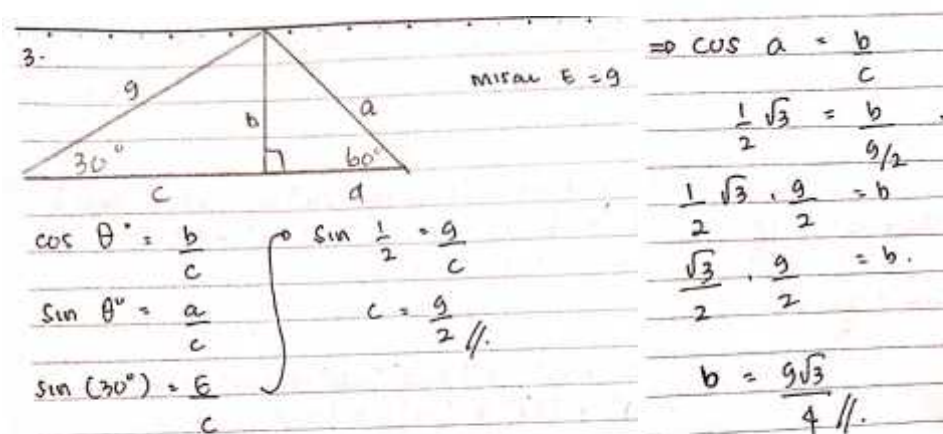 3.
9
b
a
30°
60°
c
d
misal E = 9
cos θ° = b/c
sin θ° = a/c
sin (30°) = E/c
sin 1/2 = 9/c
c = 9/2 //.
=> cos a = b/c
1/2 √3 = b/9/2
1/2 √3 . 9/2 = b
√3/2 . 9/2 = b.
b = 9√3/4 //.